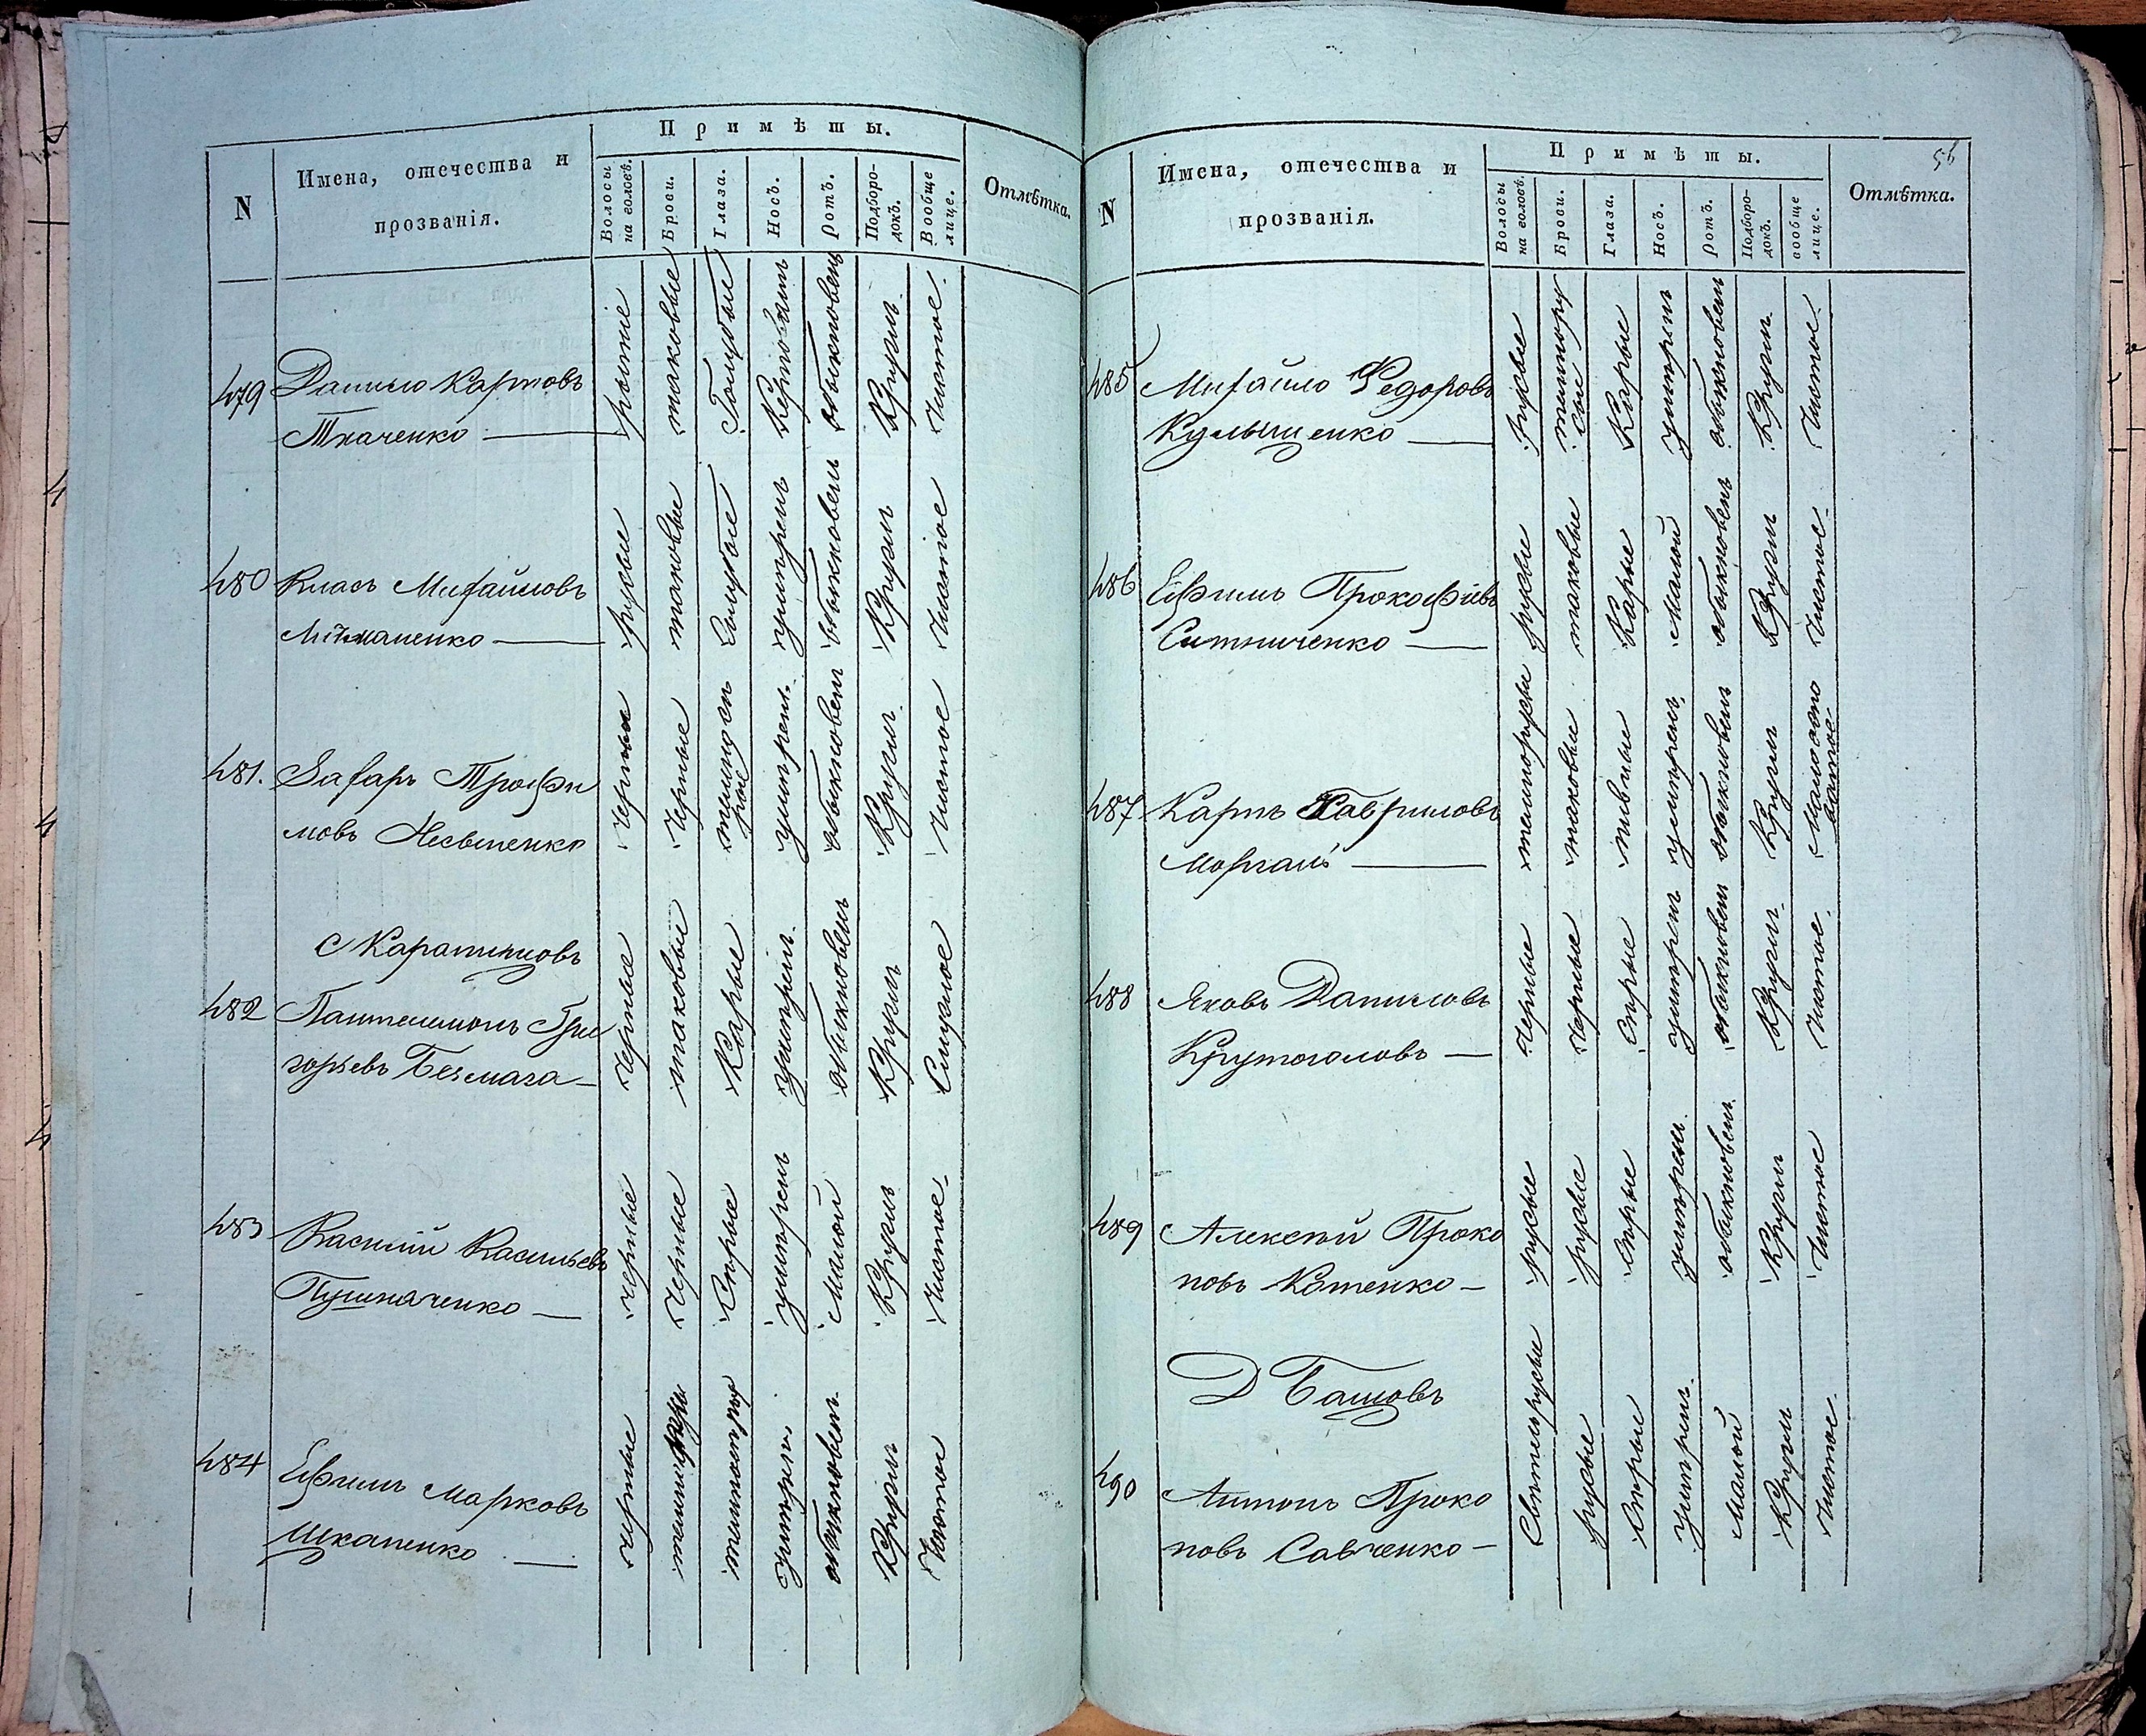 Примѣты.
N
Имена, отечества и
прозванія.
Волосы
на головѣ.
Брови.
Глаза.
Носъ.
Ротъ.
Подборо-
докъ.
Вообще
лице.
Отмѣтка.
479
Данило Карповъ
Ткаченко
таковые
Голубые
обыкновен
Кругл.
Чистое.
480
Власъ Михайловъ
русые
таковые
Голубые
умѣрен
обыкновен
Кругл
Чистое
481.
Захаръ Трофи
мовъ
Черные
Черные
темносѣ
рые
умѣрен.
обыкновен
Кругл.
Чистое
482
Пантелимонъ Гри
горьевъ
Черные
таковые
Карые
умѣрен.
обыкновен
Кругл
Смуглое
483
Василій Васильевъ
Пушкаченко
черные
Черные
Сѣрые
умѣрен
Малой
Кругл
Чистое.
484
Ефимъ Марковъ
Шкапенко
черные
темносѣрые
умѣрен.
обыкновен.
Кругл
Чистое
56
Примѣты.
N
Имена, отечества и
прозванія.
Волосы
на головѣ.
Брови.
Глаза.
Носъ.
Ротъ.
Подборо-
докъ.
вообще
лице.
Отмѣтка.
485
Михайло Федоровъ
русые
темнору
сые
Карые
умѣрен
обыкновен
Кругл.
Чистое.
486
Ефимъ Прокофіевъ
Ситниченко
русые
таковые
Карые
Малой
обыкновен
Кругл
Чистое.
487
Карпъ Гавриловъ
Моргай
темнорусые
таковые
пивные
умѣрен
обыкновен
Кругл
488
Яковъ Даниловъ
Крутоголовъ
Черные
черные
Сѣрые
умѣрен
обыкновен
Кругл.
Чистое.
489
Алексѣй Проко
повъ Котенко
русые
русые
Сѣрые
умѣрен.
обыкновен.
Кругл
Чистое
490
Антонъ Проко
повъ Савченко
Свѣтлорусые
русые
Сѣрые
умѣрен.
малой
Кругл
Чистое.